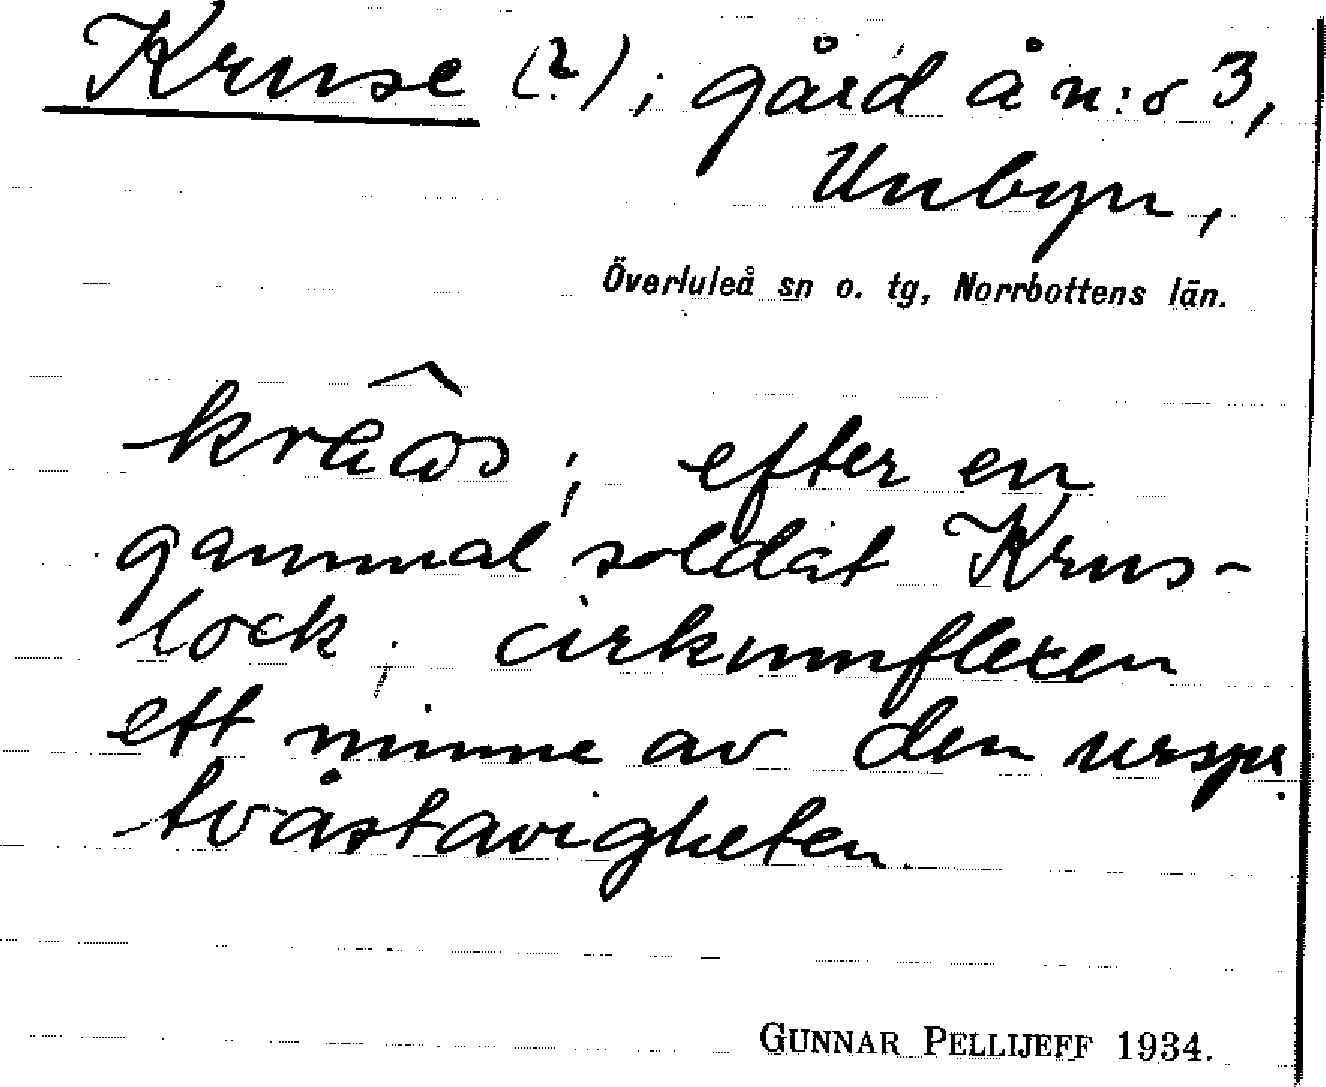 Kruse (?); gård å n:o 3,
Unbyn,
Överluleå sn o. tg, Norrbottens län.
efter en
gammal soldat Krus-
lock; cirkumflexen
ett minne av den urspr.
tvåstavigheten.
GUNNAR PELLIJEFF 1934.